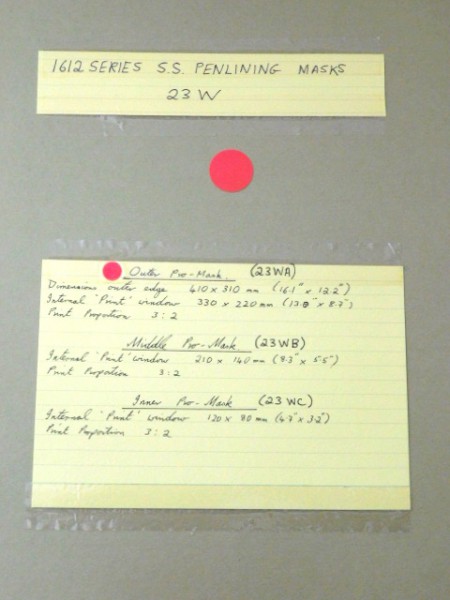 1612 SERIES S.S. PENLINING MASKS
23 W
Outer Pro-Mask (23WA)
Dimensions outer edge 410 x 310 mm (16.1" x 12.2")
Internal 'Print' window 330 x 220 mm (13.0" x 8.7")
Print Proportion 3:2
Middle Pro-Mask (23WB)
Internal 'Print' window 210 x 140 mm (8.3" x 5.5")
Print Proportion 3:2
Inner Pro-Mask (23WC)
Internal 'Print' window 120 x 80 mm (4.7" x 3.2")
Print Proportion 3:2